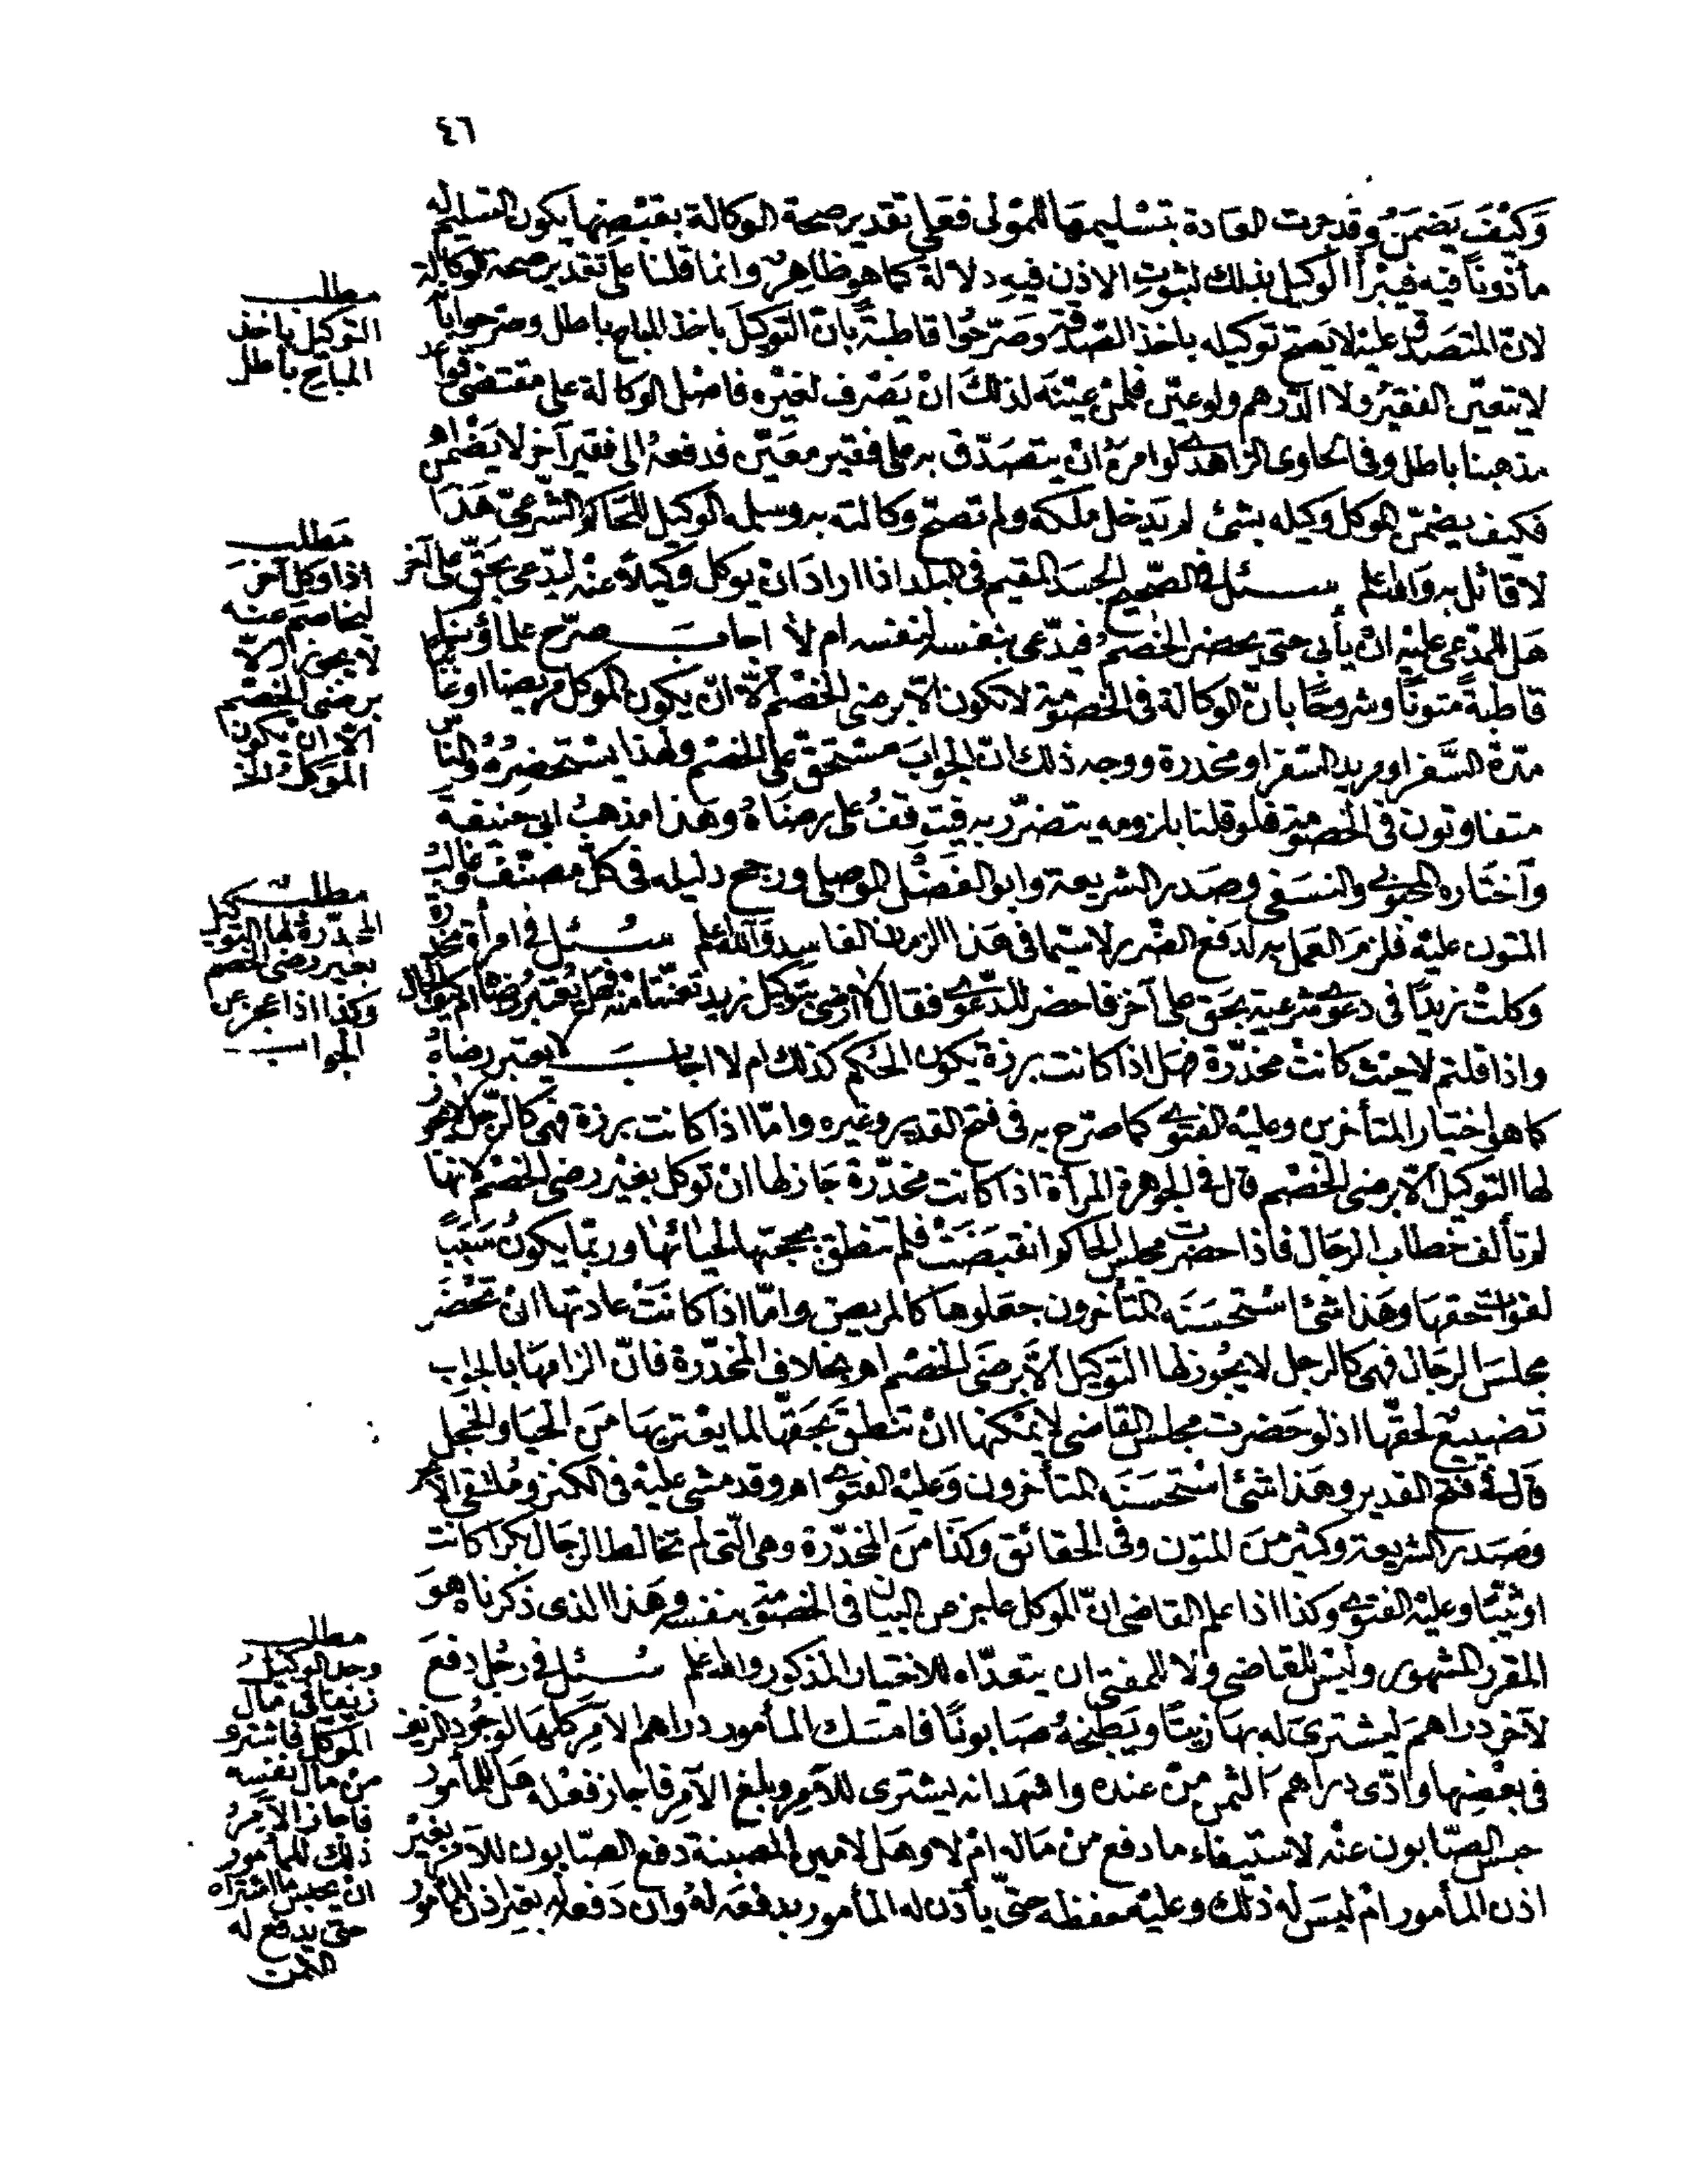 ٤٦
وَكَيْفَ يَضمَنُ وقد جرت العَادة بتسْليمهَا للمَوْلى فعَلى تقدير صحة الوكالة بقبْضها يكون التسليم له
مأذوناً فيه فيبْرأ الوكيل بذلك لثبوتِ الاذن فيهِ دلالة كما هو ظاهِر وانما قلنا على تقدير صحة الوكالة
لانّ المتصَدق عليْه لا يَصح توكيله باخذ الصّدقة وصَرّحُوا قاطبةً بانّ التوكيلَ باخذ المباح باطل وصرّحوا بانّه
لا يتعيّن الفقيرُ ولا الدّرهم ولو عيّن فلمن عيّنَه لذلكَ انْ يَصْرف لغيْره فاصْل الوكالة على مقتضى قواعد
مذهبنا باطل وفى الحاوى الزاهدي لو امرَهُ انْ يتصَدّق به على فقير معَيّن فدفعهُ الى فقير آخر لا يَضْمن اهـ
فكيف يضمّن الموكل وكيله بشئ لم يَدخل ملكه ولم تصحّ وكالته به وسلمه الوكيل للحَاكم الشّرعىّ هَذا
لا قائل به وَالله اعلم سئل فى الصّحيح الجسَد المقيم فى البَلد اذا ارادَ انْ يوكل وكيلاً عنْه ليدّعى بحَقّ على آخر
هَل للمدّعى عليْه انْ يأبى حتى يحضر الخصمُ فيدّعى بنفسه لنفسه ام لا أجابَ صرّح علماؤنا
قاطبةً متونًا وشروحًا بانّ الوكالة فى الخصومة لا تكون الّا برضى الخصْم الّا انْ يكون الموكل مريضا او غائبا
مدّة السَّفر او مريد السّفر او مخدرة ووجه ذلك انّ الجوَابَ مستحقّ على الخصْم ولهذا يسْتحضِرُهُ والناس
متفاوتون فى الخصومة فلو قلنا بلزومه يتضرّر به فيتوقفُ على رضَاهُ وهَذا مذهبُ ابى حنيفة
وآختاره المحبوبي والنسَفى وصَدر الشريعة وابو الفضْل الموصلى ورجح دليله فى كلّ مصنّف وغالبُ
المتون عليْه فلزمَ العَمل به لدفع الضّرر لا سيّما فى هَذا الزمان الفاسد وَالله اعلم سُئل فى امرأة مخدّرة
وكلتْ زيداً فى دعوى شرعية بحَق على آخر فاحضر للدّعوى فقال لا ارضى بتوكيل زيد تعنّتا منه فهَل يُعتبرُ رضَاهُ ام كيف الحال
واذا قلتم لا حيث كانتْ مخدّرة فهَل اذا كانت برزة يكون الحكم كذلك ام لا اجَابَ لا يعتبر رضاهُ
كما هو اختيار المتأخرين وعليْه الفتوى كما صرّح به فى فتح القدير وغيره وامّا اذا كانت برزة فهى كالرّجل لا يجوز
لها التوكيل الّا برضى الخصْم قال فى الجوهرة المرأة اذا كانت مخدّرة جَاز لها انْ توكل بغيْر رضى الخصْم لانّها
لم تألف خطاب الرجَال فاذا حضرت مجلس الحاكم انقبَضَتْ فلم تنطق بحجتها لحيائها وربّما يكونُ سَببًا
لفوات حقها وهَذا شئ اسْتحسَنَه المتأخرون جعَلوها كالمريض وامّا اذا كانتْ عادتها انْ تحْضَر
مجلسَ الرجَال فهى كالرجل لا يجُوز لها التوكيل الّا برضَى الخصْم اهـ بخلاف المخدّرة فانّ الزامهَا بالجواب
تضييعٌ لحقّها اذ لو حَضرت مجلس القاضى لا يمكنها انْ تنطقَ بحَقها لما يعْتريهَا منَ الحيَا والخجل
قَال فى فتح القدير وهَذا شئ اسْتحسَنَه المتأخرون وَعليْه الفتوى اهـ وقد مشى عليْه فى الكنز ومُلتقى الابحر
وصَدر الشريعة وكثير منَ المتون وفى الحقائق وكذا منَ المخدّرة وهى الّتى لم تخالط الرجَال بكرا كانت
او ثيّبًا وعليْه الفتوى وكذا اذا علم القاضى انّ الموكل عاجز عن البيان فى الخصومة بنفسه وهَذا الذى ذكرناه هوَ
المقرر المشهور وليْس للقاضى ولا للمفتى ان يتعدّاه للاختيار المذكور والله اعلم سُئل فى رجُل دفعَ
لآخر دراهمَ ليشترىَ له بهَا زيتًا ويَطبخهُ صَابونًا فامسَك المأمور دراهم الآمِر كلهَا لوجُود الزيف
فى بعْضِها وادّى دراهمَ الثمن منْ عنده واشهَد انه ليشترى للآمِر وبلغ الآمِر فاجاز فعْله هَل للمأمور
حبس الصّابون عنْه لاستيفاء ما دفع منْ مَاله امْ لا وهَل لامين المصبنة دفع الصّابون للآمر بغيْر
اذن المأمور امْ ليسَ له ذلك وعليْه حفظه حتّى يأذن له المأمور بدفعَه لهُ وان دَفعه له بغير اذن المأمور
مطلب
التوكيل باخذ
المباح باطل
مَطلب
اذا وكل آخرَ
ليخاصم عنه
لا يجوز الّا
برضى الخصْم
الّا انْ يكون
الموَكل الخ
مطلب
المخدّرة لها التوكيل
بغير رضى الخصم
وكذا اذا عجز عن
الجواب
مطلب
وجد الوكيلُ
زيفا فى مال
الموكل فاشترى
منْ مال نفسه
فاجاز الآمِرُ
ذلك للمأمور
انْ يحبس ما اشتراه
حتى يدفع له
الثمن